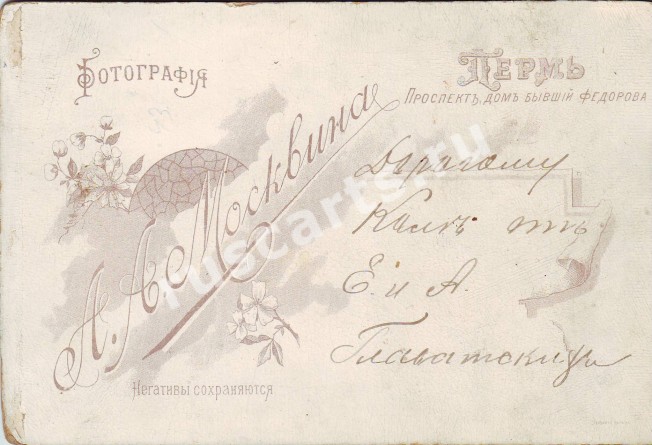 Фотографія
Пермь
Проспектъ, домъ бывшій Федорова
А. А. Москвина
Дорогому
Колѣ отъ
Е. и А.
Главатскихъ
Негативы сохраняются
ruscarts.ru